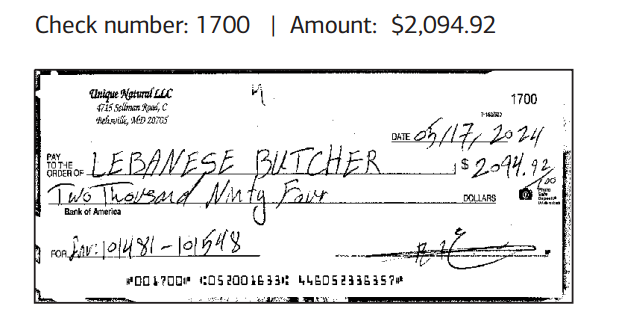 Check number: 1700 | Amount: $2,094.92
Unique Natural LLC
4715 Sellman Road, C
Beltsville, MD 20705
1700
DATE 05/17, 2024
PAY TO THE ORDER OF LEBANESE BUTCHER $ 2094.92
Two Thousand Ninty Four 92/100 DOLLARS
Bank of America
FOR Inv: 101481-101548
⑈001700⑈ ⑆052001633⑆ 446052336357⑈